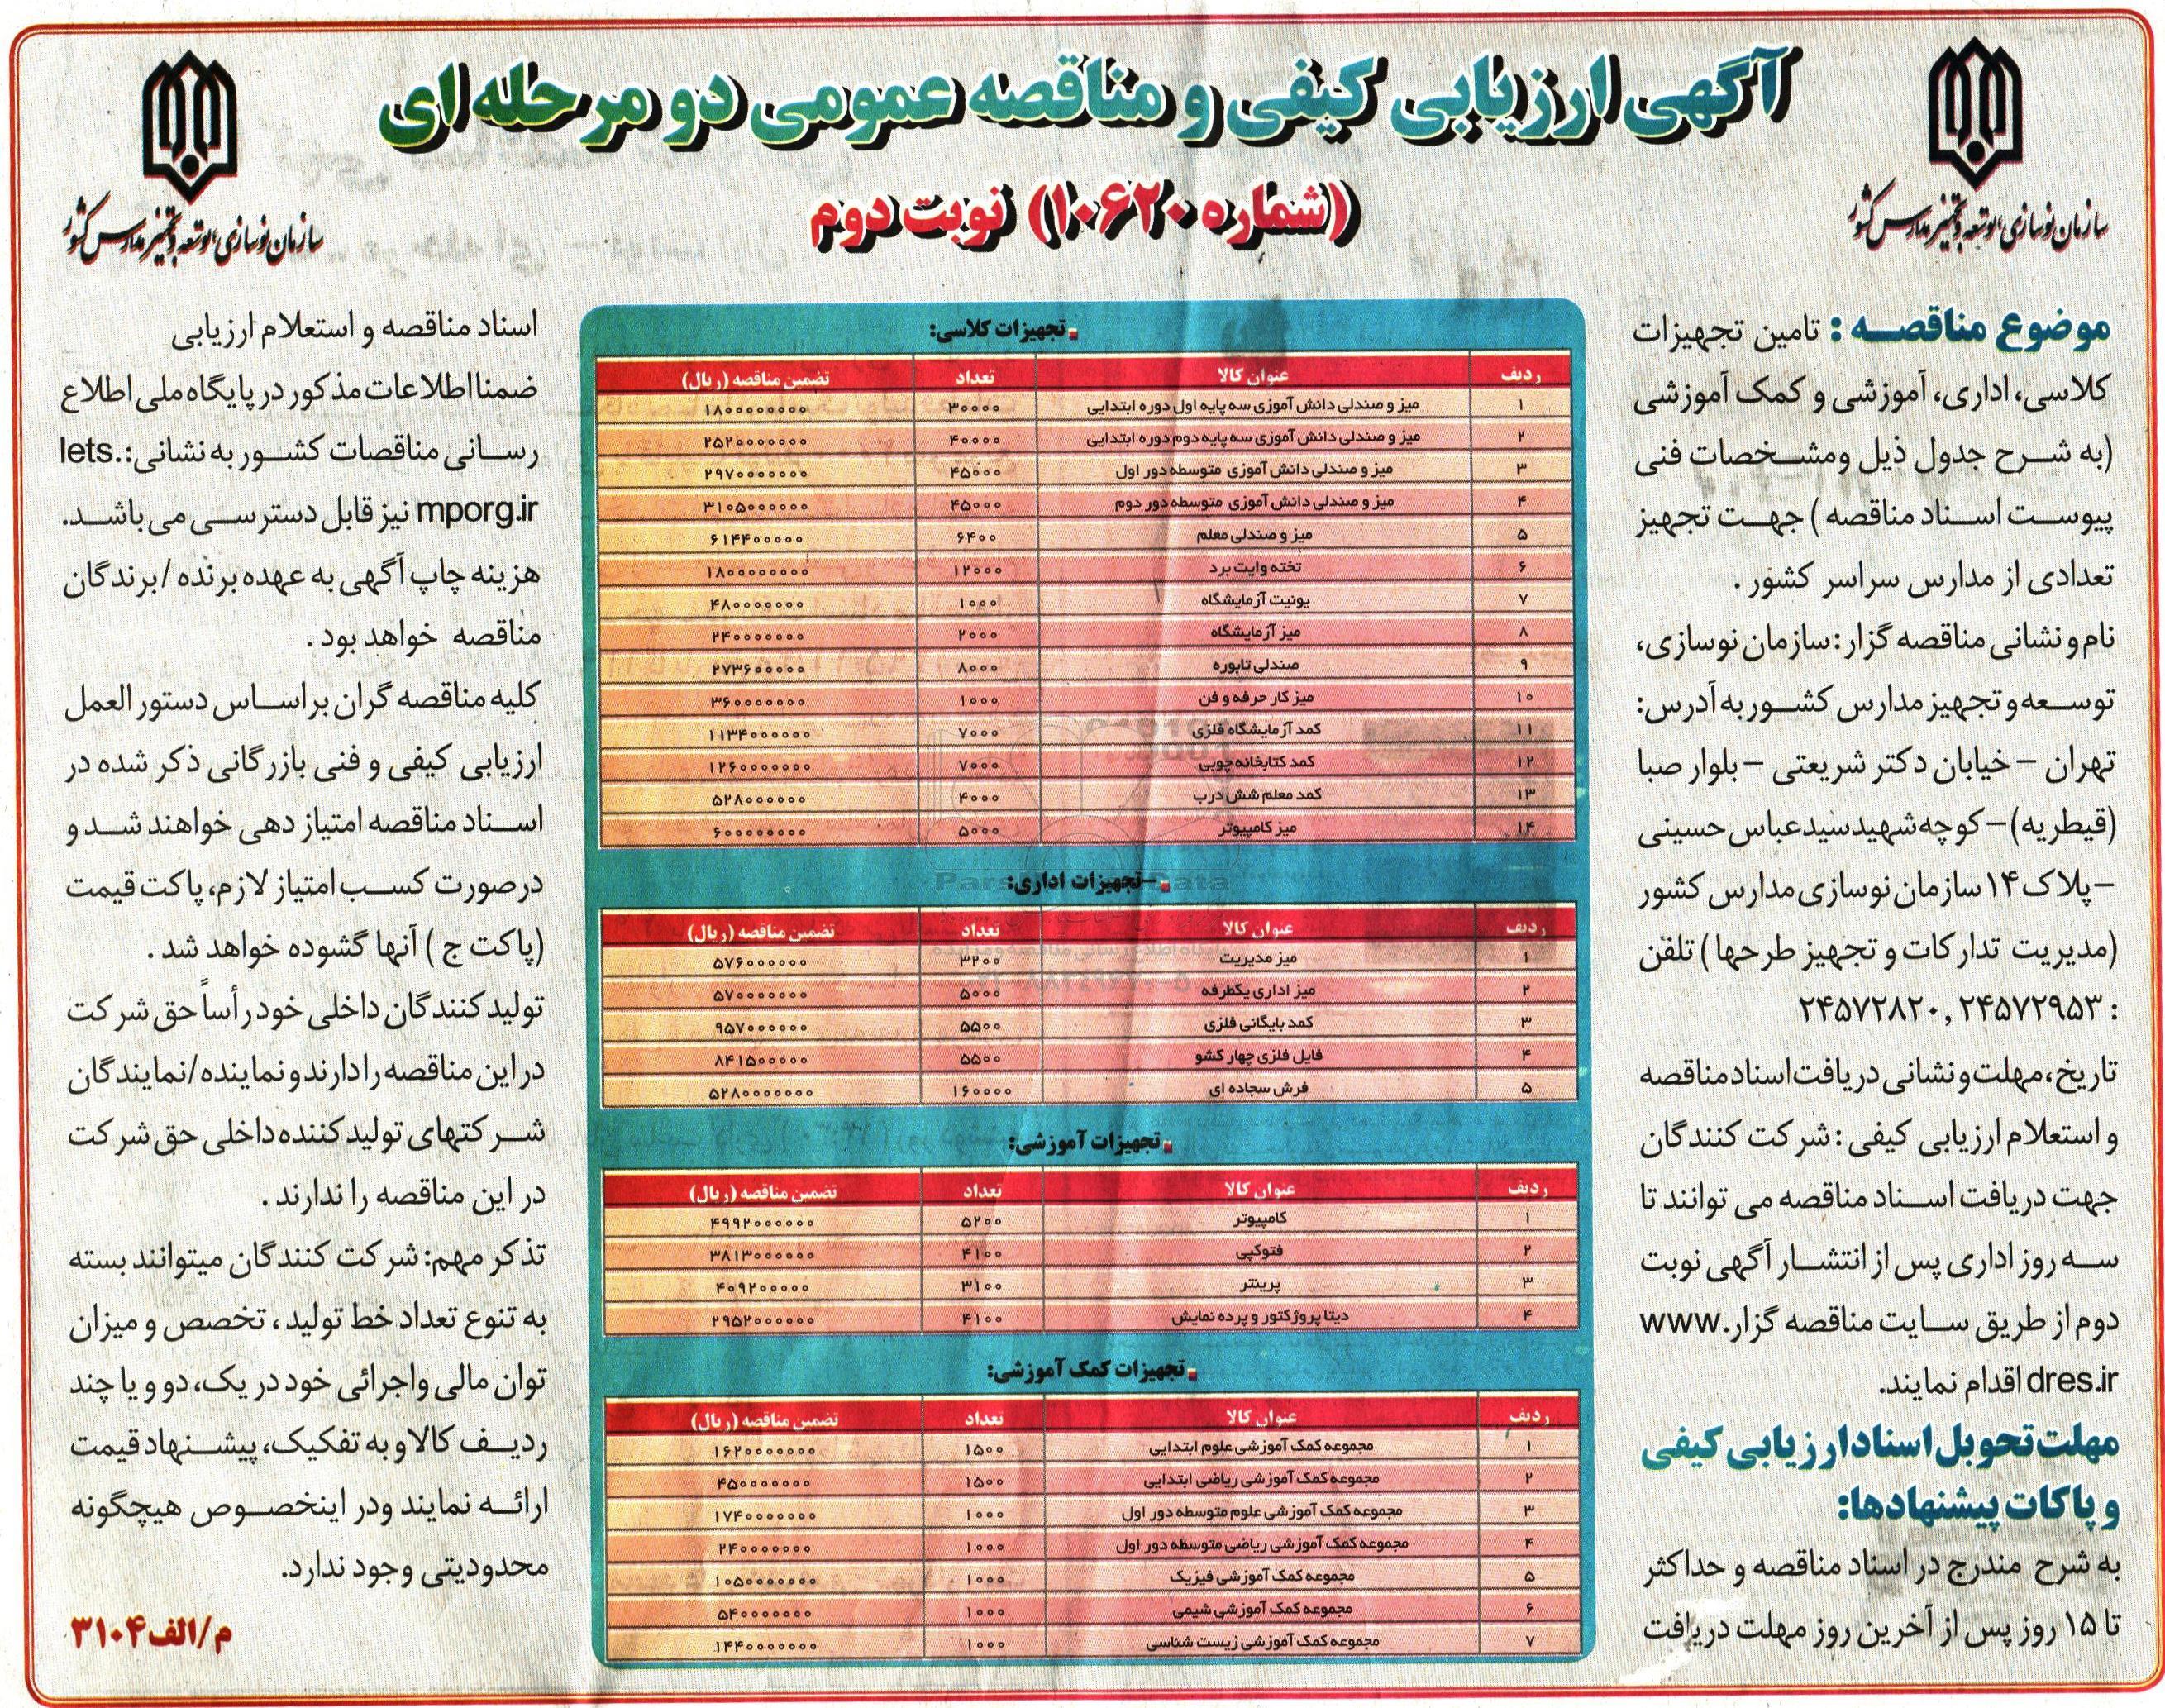 آگهی ارزیابی کیفی و مناقصه عمومی دو مرحله ای
(شماره ۱۰۶۲۰) نوبت دوم
سازمان نوسازی، توسعه و تجهیز مدارس کشور
سازمان نوسازی، توسعه و تجهیز مدارس کشور
موضوع مناقصه : تامین تجهیزات
کلاسی، اداری، آموزشی و کمک آموزشی
(به شرح جدول ذیل ومشخصات فنی
پیوست اسناد مناقصه ) جهت تجهیز
تعدادی از مدارس سراسر کشور .
نام و نشانی مناقصه گزار : سازمان نوسازی،
توسعه و تجهیز مدارس کشور به آدرس:
تهران – خیابان دکتر شریعتی – بلوار صبا
(قیطریه) – کوچه شهید سید عباس حسینی
– پلاک ۱۴ سازمان نوسازی مدارس کشور
(مدیریت تدارکات و تجهیز طرحها ) تلفن
: ۲۴۵۷۲۹۵۳ , ۲۴۵۷۲۸۲۰
تاریخ، مهلت و نشانی دریافت اسناد مناقصه
و استعلام ارزیابی کیفی : شرکت کنندگان
جهت دریافت اسناد مناقصه می توانند تا
سه روز اداری پس از انتشار آگهی نوبت
دوم از طریق سایت مناقصه گزار www.
dres.ir اقدام نمایند.
مهلت تحویل اسناد ارزیابی کیفی
و پاکات پیشنهادها:
به شرح مندرج در اسناد مناقصه و حداکثر
تا ۱۵ روز پس از آخرین روز مهلت دریافت
تجهیزات کلاسی:
ردیف عنوان کالا تعداد تضمین مناقصه (ریال)
۱ میز و صندلی دانش آموزی سه پایه اول دوره ابتدایی ۳۰۰۰۰ ۱۸۰۰۰۰۰۰۰۰
۲ میز و صندلی دانش آموزی سه پایه دوم دوره ابتدایی ۴۰۰۰۰ ۲۵۲۰۰۰۰۰۰۰
۳ میز و صندلی دانش آموزی متوسطه دور اول ۴۵۰۰۰ ۲۹۷۰۰۰۰۰۰۰
۴ میز و صندلی دانش آموزی متوسطه دور دوم ۴۵۰۰۰ ۳۱۰۵۰۰۰۰۰۰
۵ میز و صندلی معلم ۶۴۰۰ ۶۱۴۴۰۰۰۰۰
۶ تخته وایت برد ۱۲۰۰۰ ۱۸۰۰۰۰۰۰۰۰
۷ یونیت آزمایشگاه ۱۰۰۰ ۴۸۰۰۰۰۰۰۰
۸ میز آزمایشگاه ۲۰۰۰ ۲۴۰۰۰۰۰۰۰
۹ صندلی تابوره ۸۰۰۰ ۲۷۳۶۰۰۰۰۰
۱۰ میز کار حرفه و فن ۱۰۰۰ ۳۶۰۰۰۰۰۰۰
۱۱ کمد آزمایشگاه فلزی ۷۰۰۰ ۱۱۳۴۰۰۰۰۰۰
۱۲ کمد کتابخانه چوبی ۷۰۰۰ ۱۲۶۰۰۰۰۰۰۰
۱۳ کمد معلم شش درب ۴۰۰۰ ۵۲۸۰۰۰۰۰۰
۱۴ میز کامپیوتر ۵۰۰۰ ۶۰۰۰۰۰۰۰۰
-تجهیزات اداری:
ردیف عنوان کالا تعداد تضمین مناقصه (ریال)
۱ میز مدیریت ۳۲۰۰ ۵۷۶۰۰۰۰۰۰
۲ میز اداری یکطرفه ۵۰۰۰ ۵۷۰۰۰۰۰۰۰
۳ کمد بایگانی فلزی ۵۵۰۰ ۹۵۷۰۰۰۰۰۰
۴ فایل فلزی چهار کشو ۵۵۰۰ ۸۴۱۵۰۰۰۰۰
۵ فرش سجاده ای ۱۶۰۰۰۰ ۵۲۸۰۰۰۰۰۰۰
تجهیزات آموزشی:
ردیف عنوان کالا تعداد تضمین مناقصه (ریال)
۱ کامپیوتر ۵۲۰۰ ۴۹۹۲۰۰۰۰۰۰
۲ فتوکپی ۴۱۰۰ ۳۸۱۳۰۰۰۰۰۰
۳ پرینتر ۳۱۰۰ ۴۰۹۲۰۰۰۰۰
۴ دیتا پروژکتور و پرده نمایش ۴۱۰۰ ۲۹۵۲۰۰۰۰۰۰
تجهیزات کمک آموزشی:
ردیف عنوان کالا تعداد تضمین مناقصه (ریال)
۱ مجموعه کمک آموزشی علوم ابتدایی ۱۵۰۰ ۱۶۲۰۰۰۰۰۰۰
۲ مجموعه کمک آموزشی ریاضی ابتدایی ۱۵۰۰ ۴۵۰۰۰۰۰۰۰
۳ مجموعه کمک آموزشی علوم متوسطه دور اول ۱۰۰۰ ۱۷۴۰۰۰۰۰۰۰
۴ مجموعه کمک آموزشی ریاضی متوسطه دور اول ۱۰۰۰ ۲۴۰۰۰۰۰۰۰
۵ مجموعه کمک آموزشی فیزیک ۱۰۰۰ ۱۰۵۰۰۰۰۰۰۰
۶ مجموعه کمک آموزشی شیمی ۱۰۰۰ ۵۴۰۰۰۰۰۰۰
۷ مجموعه کمک آموزشی زیست شناسی ۱۰۰۰ ۱۴۴۰۰۰۰۰۰۰
اسناد مناقصه و استعلام ارزیابی
ضمنا اطلاعات مذکور در پایگاه ملی اطلاع
رسانی مناقصات کشور به نشانی: iets.
mporg.ir نیز قابل دسترسی می باشد.
هزینه چاپ آگهی به عهده برنده / برندگان
مناقصه خواهد بود .
کلیه مناقصه گران براساس دستور العمل
ارزیابی کیفی و فنی بازرگانی ذکر شده در
اسناد مناقصه امتیاز دهی خواهند شد و
درصورت کسب امتیاز لازم، پاکت قیمت
(پاکت ج ) آنها گشوده خواهد شد .
تولید کنندگان داخلی خود رأساً حق شرکت
در این مناقصه را دارند و نماینده/نمایندگان
شرکتهای تولید کننده داخلی حق شرکت
در این مناقصه را ندارند .
تذکر مهم: شرکت کنندگان میتوانند بسته
به تنوع تعداد خط تولید ، تخصص و میزان
توان مالی واجرائی خود در یک، دو و یا چند
ردیف کالا و به تفکیک، پیشنهاد قیمت
ارائه نمایند ودر اینخصوص هیچگونه
محدودیتی وجود ندارد.
م/الف ۳۱۰۴